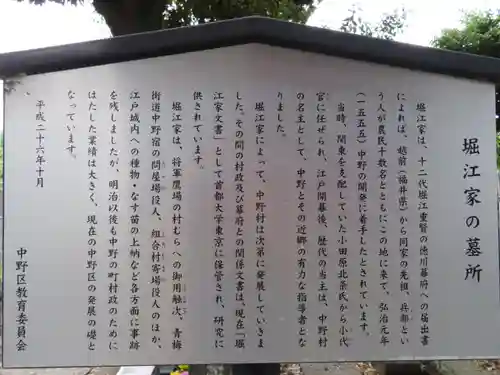 堀江家の墓所
堀江家は、十二代堀江重賢の徳川幕府への届出書
によれば、越前（福井県）から同家の先祖、兵部とい
う人が農民十数名とともにこの地に来て、弘治元年
（一五五五）中野の開発に着手したとされています。
当時、関東を支配していた小田原北条氏から小代
官に任ぜられ、江戸開幕後、歴代の当主は、中野村
の名主として、中野とその近郷の有力な指導者とな
りました。
堀江家によって、中野村は次第に発展していきま
した。その間の村政及び幕府との関係文書は、現在「堀
江家文書」として首都大学東京に保管され、研究に
供されています。
堀江家は、将軍鷹場の村むらへの御用触次、青梅
街道中野宿の問屋場役人、組合村寄場役人のほか、
江戸城内への種物・なす苗の上納など各方面に事跡
を残しましたが、明治以後も中野の町村政のために
はたした業績は大きく、現在の中野区の発展の礎と
なっています。
平成二十六年十月
中野区教育委員会